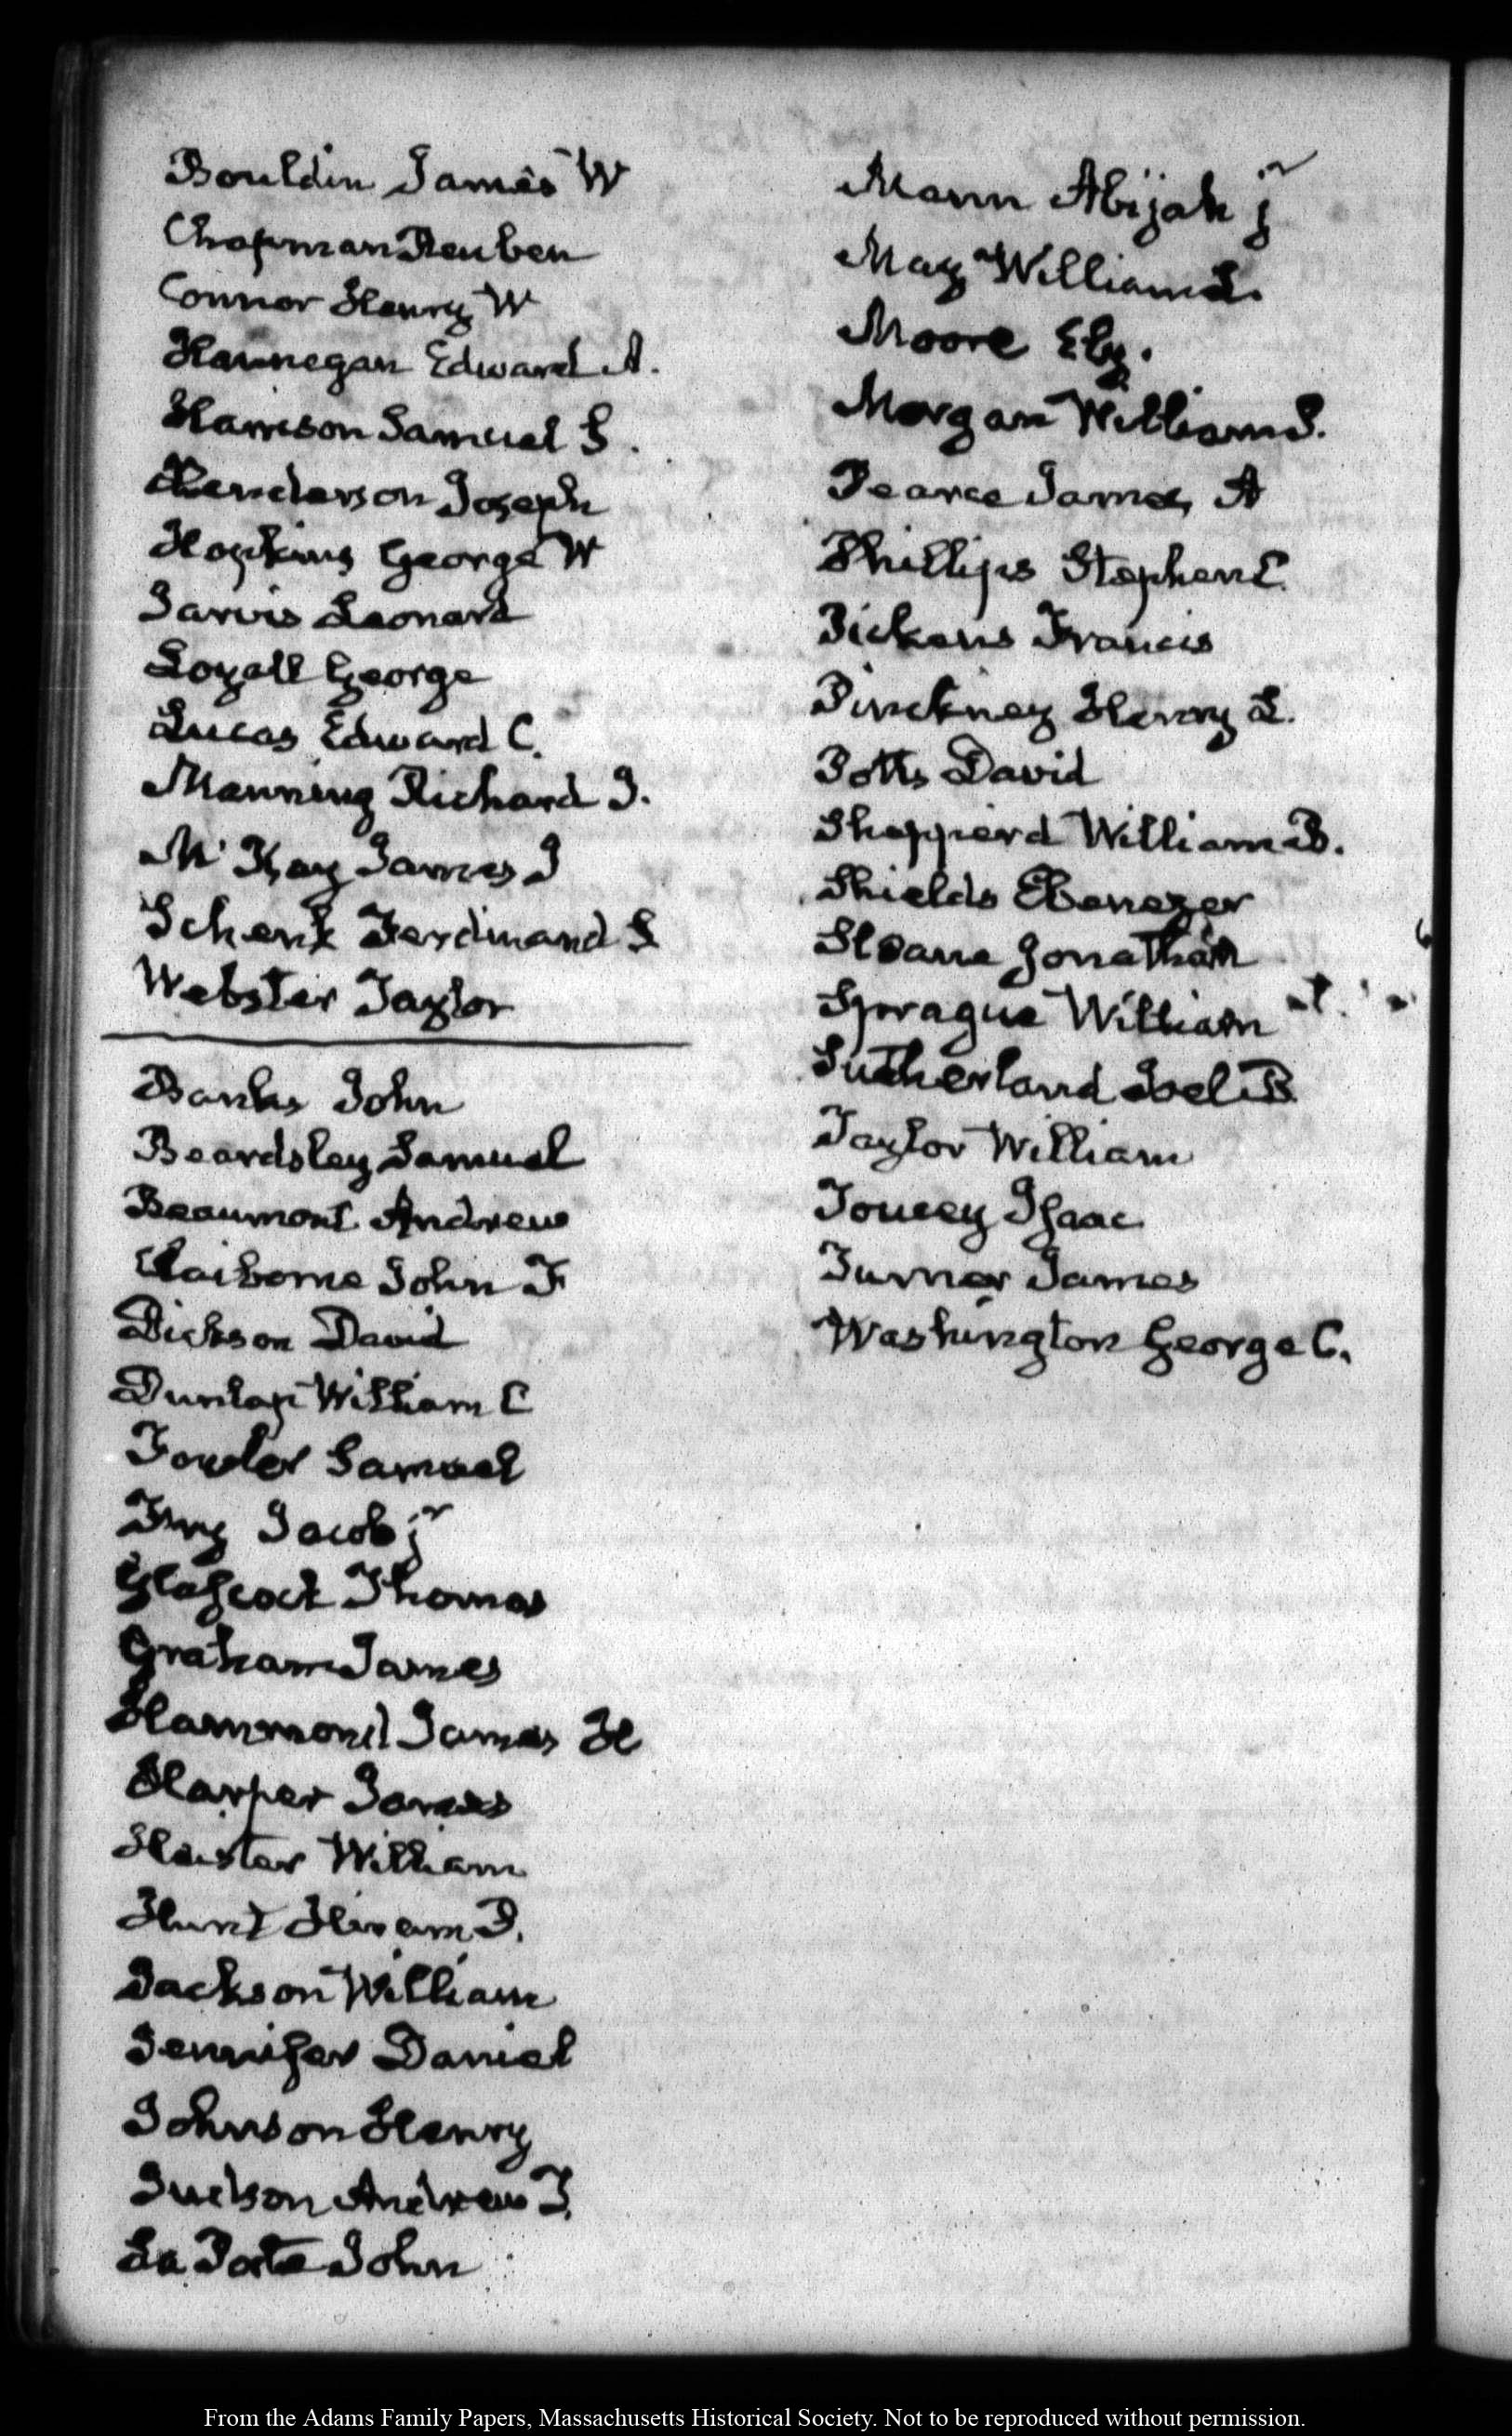 Bouldin James W
Chapman Reuben
Connor Henry W
Hannegan Edward A.
Harrison Samuel S.
Henderson Joseph
Hopkins George W
Jarvis Leonard
Loyall George
Lucas Edward C.
Manning Richard J.
McKay James J
Schenk Ferdinand S
Webster Taylor
Banks John
Beardsley Samuel
Beaumont Andrew
Claiborne John F
Dickson David
Dunlap William C
Fowler Samuel
Fry Jacob jr
Glascock Thomas
Graham James
Hammond James H
Harper James
Hiester William
Hunt Hiram P.
Jackson William
Jenifer Daniel
Johnson Henry
Judson Andrew T.
La Porte John
Mann Abijah jr
May William L.
Moore Ely.
Morgan William S.
Pearce James A
Phillips Stephen C.
Pickens Francis
Pinckney Henry L.
Potts David
Shepperd William B.
Shields Ebenezer
Sloane Jonathan
Sprague William
Sutherland Joel B.
Taylor William
Toucey Isaac
Turner James
Washington George C.
From the Adams Family Papers, Massachusetts Historical Society. Not to be reproduced without permission.